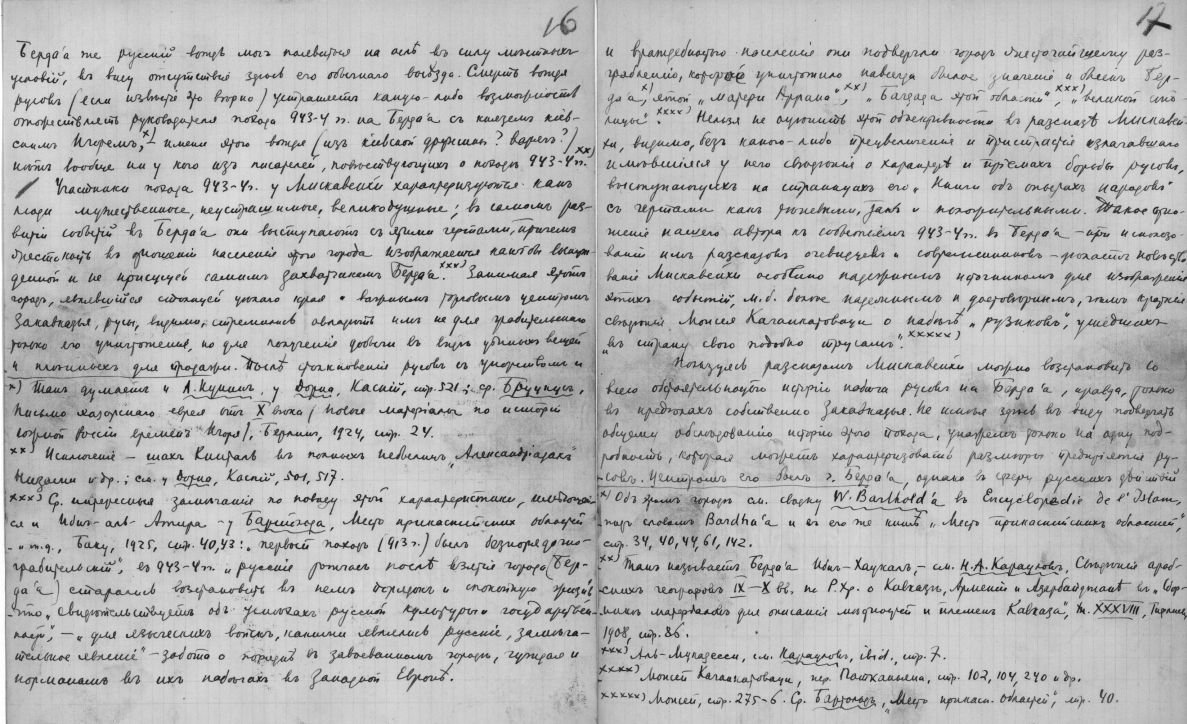 16
Берда'а же русскій вождь могъ появиться на ослѣ въ силу мѣстныхъ
условій, въ виду отсутствія здѣсь его обычнаго выѣзда. Смерть вождя
русовъ (если извѣстіе это вѣрно) устраняетъ какую-либо возможность
отожествлять руководителя похода 943-4 гг. на Берда'а съ княземъ кіев-
скимъ Игоремъ,ˣ⁾ – имени этого вождя (изъ кіевской дружины? варяга?)
нѣтъ вообще ни у кого изъ писателей, повѣствующихъ о походѣ 943-4 гг.ˣˣ⁾
Участники похода 943-4 гг. у Мискавейхи характеризуются какъ
люди мужественные, неустрашимые, великодушные; въ самомъ раз-
витіи событій въ Берда'а они выступаютъ съ этими чертами, причемъ
жестокость въ отношеніи населенія этого города изображается какъ бы вынуж-
денной и не присущей самимъ захватчикамъ Берда'а.ˣˣˣ⁾ Занимая этотъ
городъ, являвшійся столицей цѣлаго края и важнымъ торговымъ центромъ
Закавказья, русы, видимо, стремились овладѣть имъ не для грабительскаго
только его уничтоженія, но для полученія добычи въ видѣ цѣнныхъ вещей
и плѣнныхъ для продажи. Послѣ столкновенія русовъ съ упорствомъ и
х) Такъ думаетъ и А. Куникъ у Дорна, Каспій, стр. 521; ср. Бруцкусъ,
Письмо хазарскаго еврея отъ X вѣка (Новые матеріалы по исторіи
южной Россіи временъ Игоря), Берлинъ, 1924, стр. 24.
хх) Исключеніе – шахъ Кинталъ въ поэмахъ "Александріадахъ"
Низами и др.; см. у Дорна, Каспій, 501, 517.
ххх) Ср. интересныя замѣчанія по поводу этой характеристики, имѣющей-
ся и Ибнъ-аль-Атира – у Бартольда, Мѣсто прикаспійскихъ областей
и т. д., Баку, 1925, стр. 40, 43: "первый походъ (913 г.) былъ безпорядочно-
грабительскій", въ 943-4 гг. "русскіе тотчасъ послѣ взятія города (Бер-
да'а) старались возстановить въ немъ порядокъ и спокойную жизнь",
что "свидѣтельствуетъ объ успѣхахъ русской культуры и государствен-
ности", – "для языческихъ войскъ, какими являлись русскіе, замѣча-
тельное явленіе" – забота о порядкѣ въ завоеванномъ городѣ, чуждая и
норманамъ въ ихъ набѣгахъ въ Западной Европѣ.
17
и враждебностью населенія они подвергли городъ жесточайшему раз-
грабленію, которое уничтожило навсегда былое значеніе и блескъ Бер-
да'а,ˣ⁾ этой "матери Аррана",ˣˣ⁾ "Багдада этой области",ˣˣˣ⁾ "великой сто-
лицы".ˣˣˣˣ⁾ Нельзя не оцѣнить этой объективности въ разсказѣ Мискавей-
хи, видимо, безъ какого-либо преувеличенія и пристрастія излагавшаго
имѣвшіяся у него свѣдѣнія о характерѣ и пріемахъ борьбы русовъ,
выступающихъ на страницахъ его "Книги объ опытахъ народовъ"
съ чертами какъ дюжими, такъ и положительными. Такое отно-
женіе нашего автора къ событіямъ 943-4 гг. въ Берда'а – при использо-
ваніи имъ разсказовъ очевидцевъ и современниковъ – дѣлаетъ повѣство-
ваніе Мискавейхи особенно надежнымъ источникомъ для изображенія
этихъ событій, м. б. болѣе надежнымъ и достовѣрнымъ, чѣмъ краткія
свѣдѣнія Моисея Каганкатоваци о набѣгѣ "рузиковъ", ушедшихъ
"въ страну свою подобно трусамъ".ˣˣˣˣˣ⁾
Пользуясь разсказомъ Мискавейхи можно возстановить со
всей обстоятельностью исторію набѣга русовъ на Берда'а, правда, только
въ предѣлахъ собственно Закавказья. Не имѣя здѣсь въ виду подвергать
общему обслѣдованію исторію этого похода, укажемъ только на одну под-
робность, которая можетъ характеризовать размѣры предпріятія ру-
совъ. Центромъ его былъ г. Берда'а, однако въ сферу русскихъ дѣйствій
х) Объ этомъ городѣ см. сводку W. Barthold'a въ Encyclopédie de l'Islam,
подъ словомъ Bardha'a и въ его же книгѣ "Мѣсто прикаспійскихъ областей",
стр. 34, 40, 44, 61, 142.
хх) Такъ называетъ Берда'а Ибнъ-Хаукалъ, – см. Н. А. Карауловъ, Свѣдѣнія араб-
скихъ географовъ IX–X вв. по Р. Хр. о Кавказѣ, Арменіи и Азербайджанѣ въ "Сбор-
никѣ матеріаловъ для описанія мѣстностей и племенъ Кавказа", т. XXXVIII, Тифлисъ,
1908, стр. 86.
ххх) Аль-Мукадеси, см. Карауловъ, ibid., стр. 7.
хххх) Моисей Каганкатоваци, пер. Патканьяна, стр. 102, 104, 240 и др.
ххххх) Моисей, стр. 275-6. Ср. Бартольдъ, "Мѣсто прикасп. областей", стр. 40.